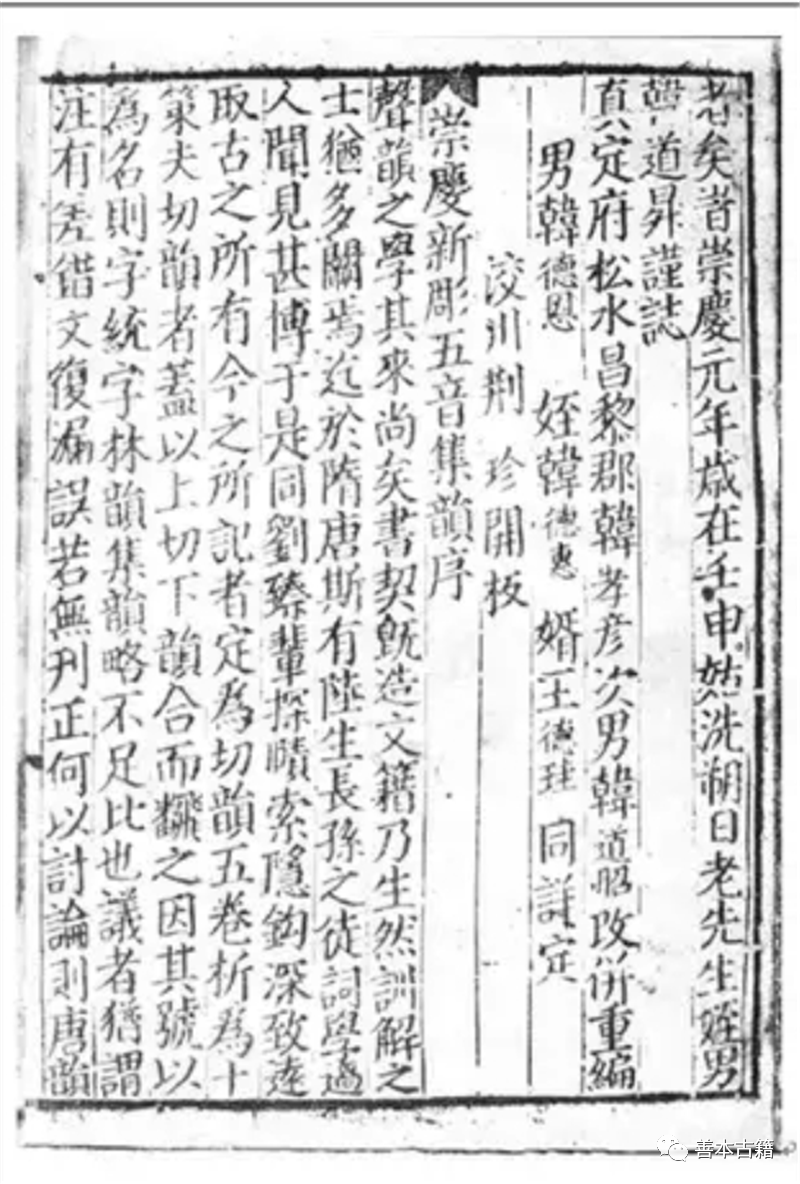 老矣旹崇慶元年歲在壬申姑洗朔日老先生姪男
韓道昇謹誌
真定府松水昌黎郡韓孝彥次男韓道昭改併重編
男韓德恩 姪韓德惠 婿王德珪 同詳定
浤川荆 珍開板
崇慶新彫五音集韻序
聲韻之學其來尚矣書契旣造文籍乃生然訓解之
士猶多闕焉近於隋唐斯有陸生長孫之徒詞學過
人聞見甚博于是同劉臻輩探賾索隱鈎深致遠
取古之所有今之所記者定為切韻五卷析為十
策夫切韻者蓋以上切下韻合而飜之因其號以
為名則字統字林韻集韻略不足比也議者猶謂
注有差錯文復漏誤若無刋正何以討論則唐韻
善本古籍